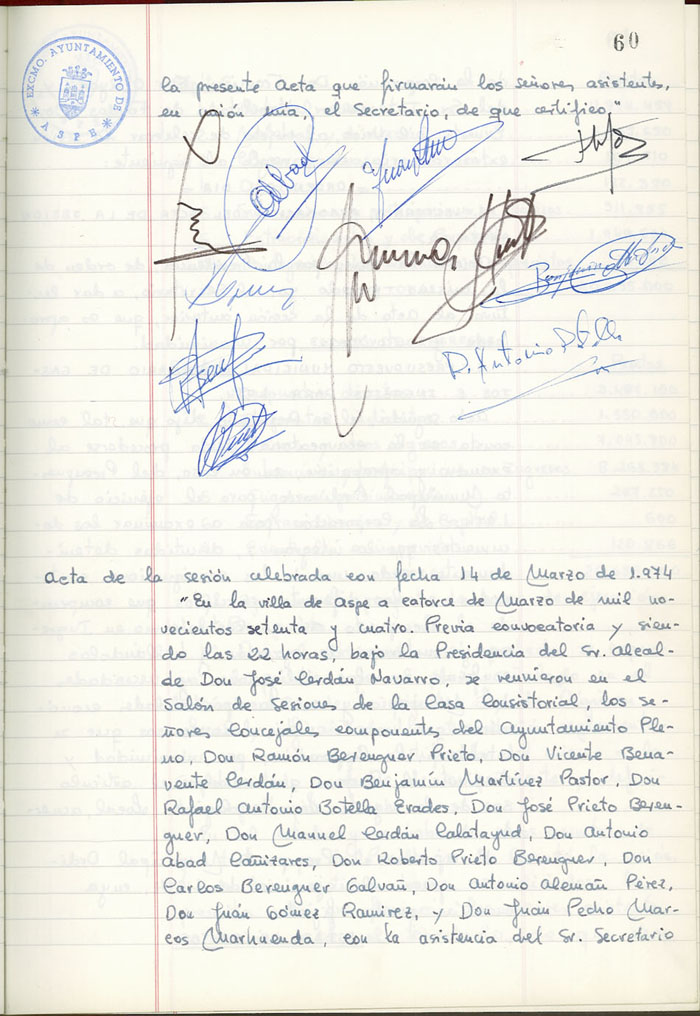 60
EXCMO. AYUNTAMIENTO DE
* ASPE *
la presente Acta que firmarán los señores asistentes,
en unión mia, el Secretario, de que certifico"
Abad
R. Antonio Botella
Acta de la sesión celebrada con fecha 14 de Marzo de 1.974
"En la villa de Aspe a catorce de Marzo de mil no-
vecientos setenta y cuatro. Previa convocatoria y sien-
do las 22 horas, bajo la Presidencia del Sr. Alcal-
de Don José Cerdán Navarro, se reunieron en el
Salón de Sesiones de la Casa Consistorial, los se-
ñores Concejales componentes del Ayuntamiento Ple-
no, Don Ramón Berenguer Prieto, Don Vicente Bena-
vente Cerdán, Don Benjamín Martínez Pastor, Don
Rafael Antonio Botella Erades, Don José Prieto Beren-
guer, Don Manuel Cerdán Calatayud, Don Antonio
Abad Cañizares, Don Roberto Prieto Berenguer, Don
Carlos Berenguer Galvañ, Don Antonio Alemañ Pérez,
Don Juán Gómez Ramirez, y Don Juán Pedro Mar-
cos Marhuenda, con la asistencia del Sr. Secretario